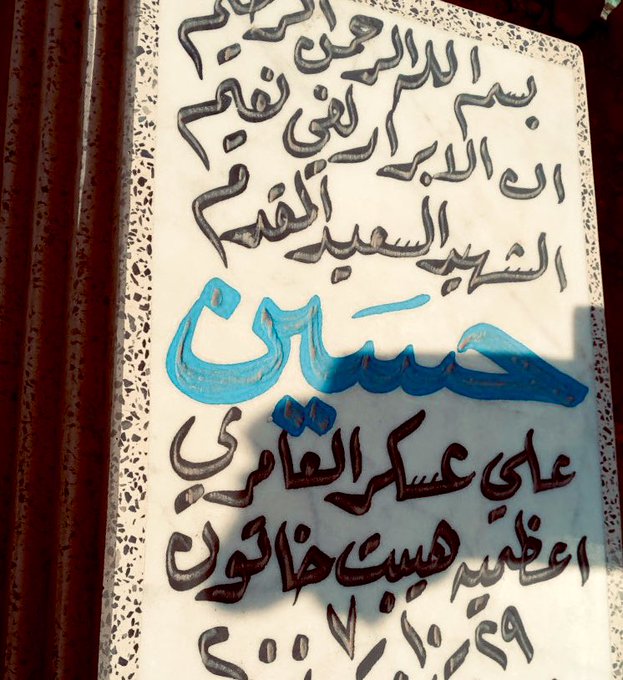 بسم الله الرحمن الرحيم
ان الابرار لفي نعيم
الشهيد السعيد المقدم
حسين
علي عسكر العامري
اعظميه هيبت خاتون
٢٩ ١٠ ٢٠٠٧